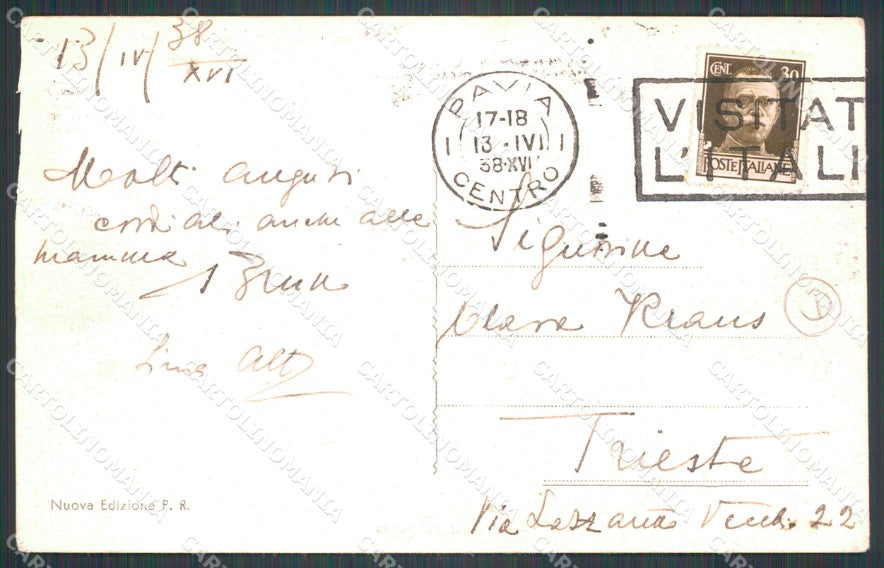 13/IV/38
XVI
Molti auguri
cordiali anche alle
mamma
Bruno
Lina
Nuova Edizione F. R.
PAVIA
17-18
13 · IV
38·XVI
CENTRO
CENT. 30
POSTE ITALIANE
VISITAT
L'ITALI
Signorina
Clara Kraus
Trieste
Via Lazzaretto Vecchio 22
CARTOLINOMANIA